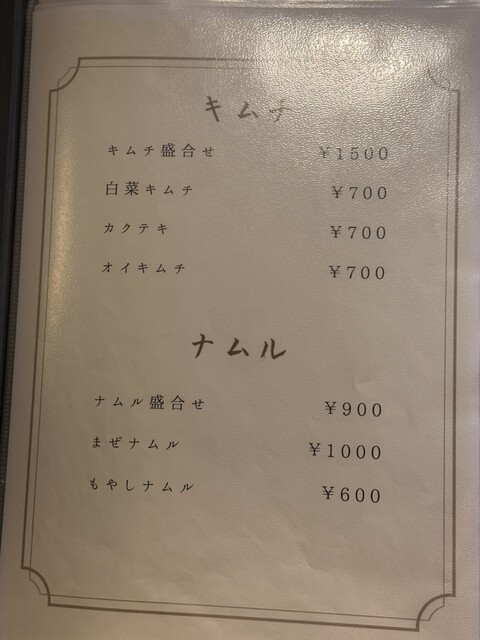 キムチ
キムチ盛合せ ¥1500
白菜キムチ ¥700
カクテキ ¥700
オイキムチ ¥700
ナムル
ナムル盛合せ ¥900
まぜナムル ¥1000
もやしナムル ¥600